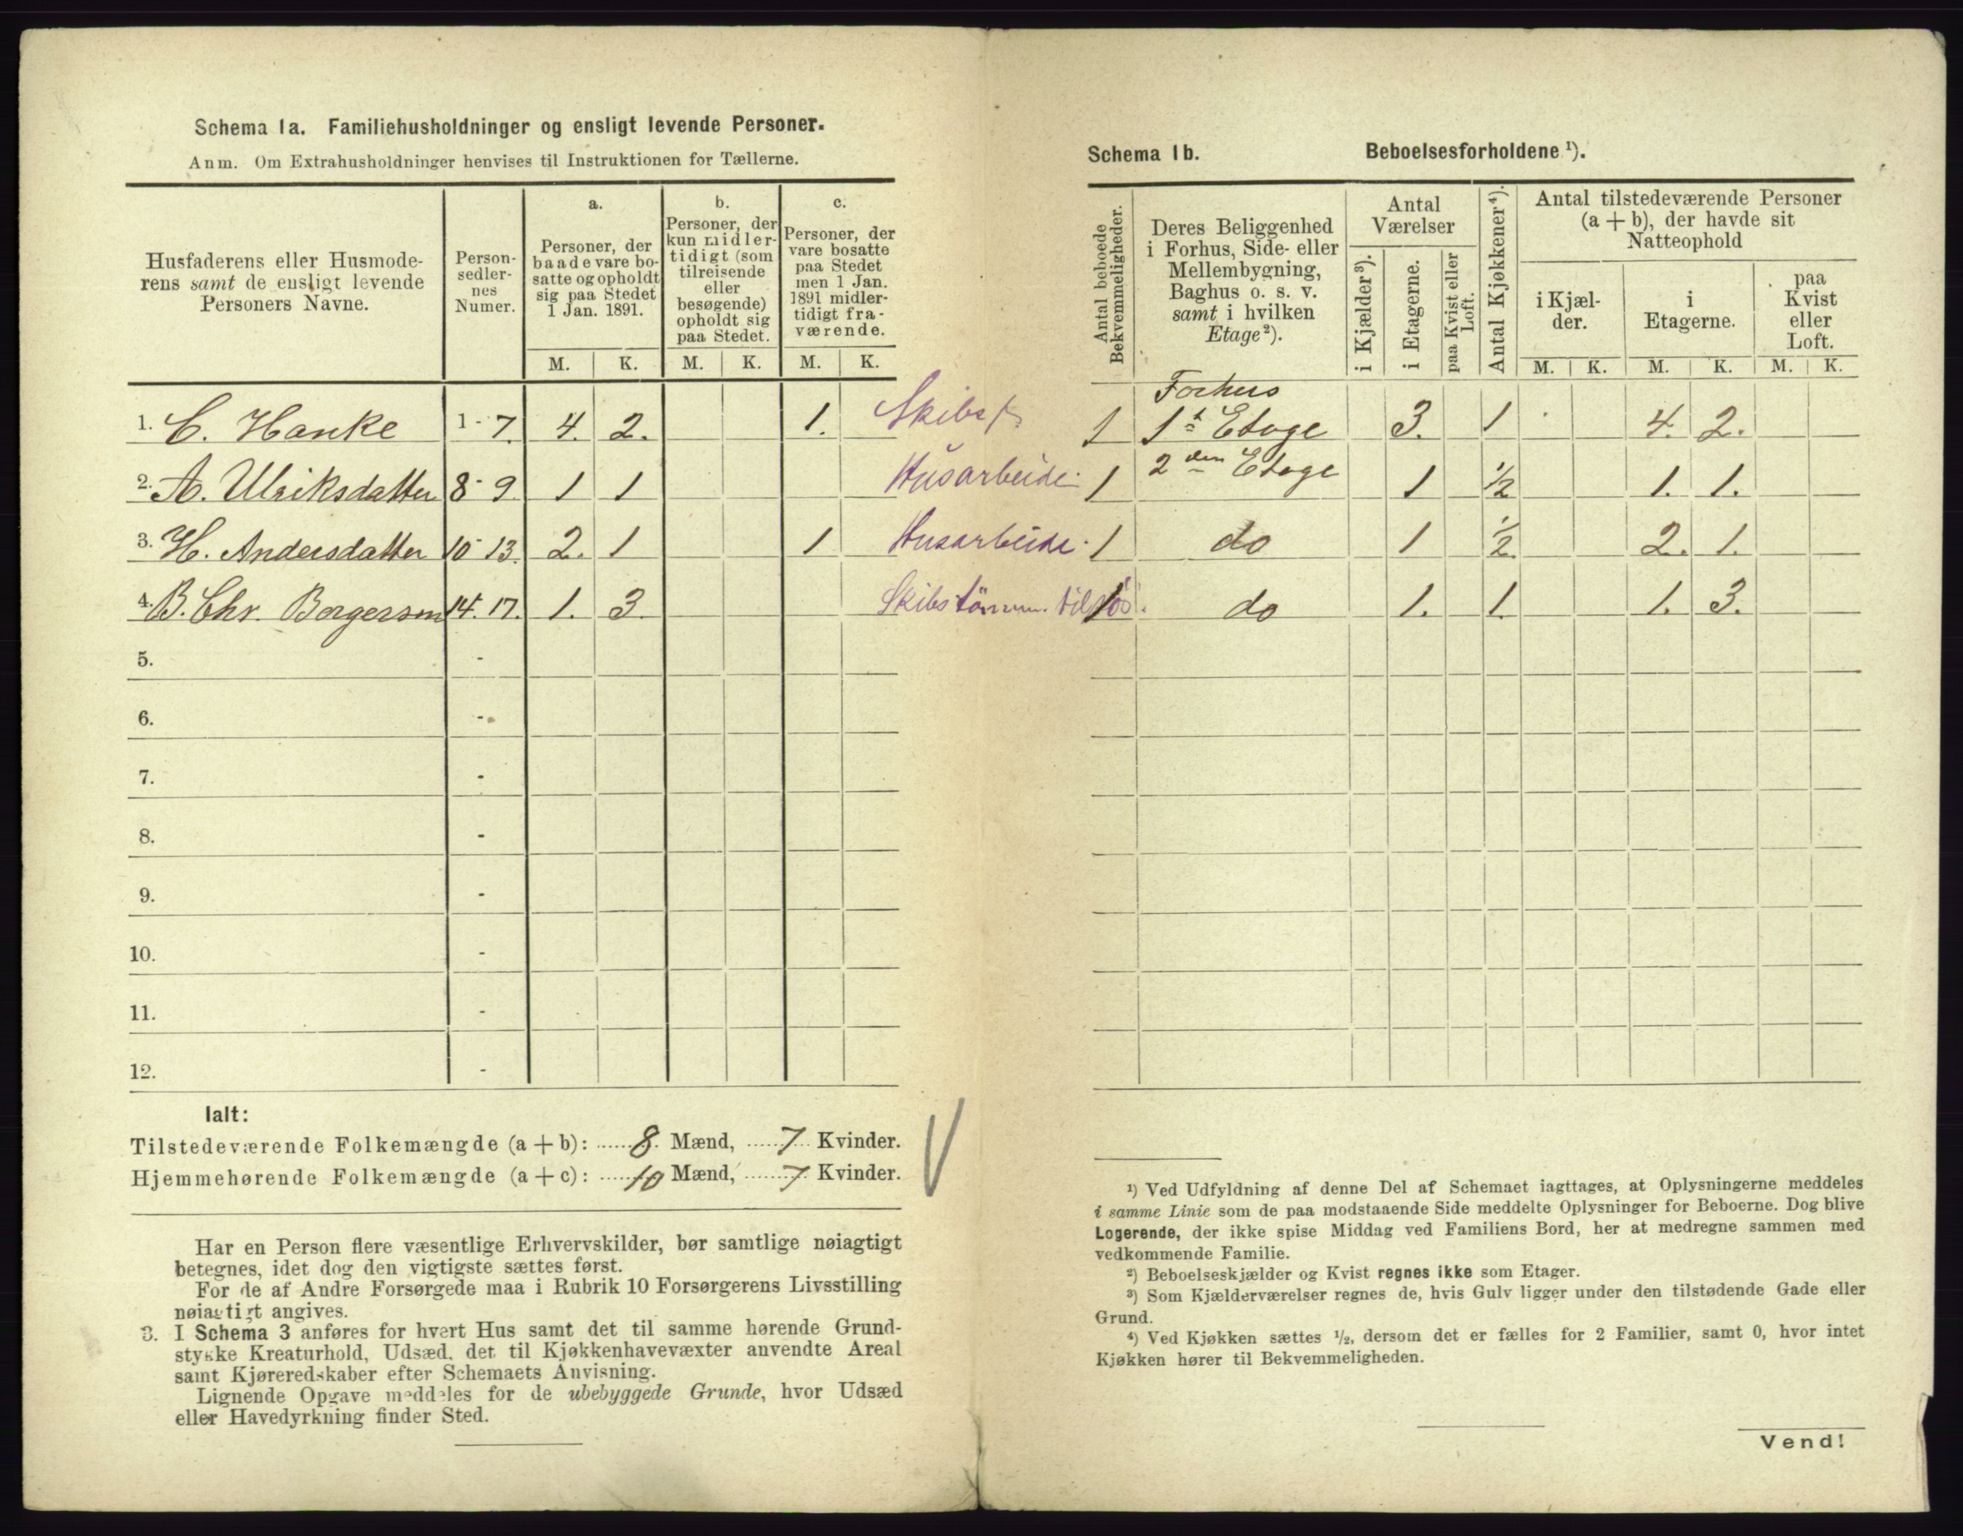 Schema 1a. Familiehusholdninger og ensligt levende Personer.
Anm. Om Extrahusholdninger henvises til Instruktionen for Tællerne.
Husfaderens eller Husmoderens samt de ensligt levende Personers Navne.
Personsedlernes Numer.
a.
Personer, der baade vare bosatte og opholdt sig paa Stedet 1 Jan. 1891.
b.
Personer, der kun midlertidigt (som tilreisende eller besøgende) opholdt sig paa Stedet.
c.
Personer, der vare bosatte paa Stedet men 1 Jan. 1891 midlertidigt fraværende.
M. K. M. K. M. K.
1. C. Hanke 1-7. 4. 2. 1. Skibsf.
2. A. Ulriksdatter 8-9. 1 1 Husarbeide.
3. H. Andersdatter 10-13. 2. 1 1 Husarbeide.
4. B. Chr. Borgersen 14-17. 1. 3. Skibstömm. tilsös.
5. -
6. -
7. -
8. -
9. -
10. -
11. -
12. -
Ialt:
Tilstedeværende Folkemængde (a + b): 8. Mænd, 7 Kvinder.
Hjemmehørende Folkemængde (a + c): 10 Mænd, 7 Kvinder.
Har en Person flere væsentlige Erhvervskilder, bør samtlige nøiagtigt
betegnes, idet dog den vigtigste sættes først.
For de af Andre Forsørgede maa i Rubrik 10 Forsørgerens Livsstilling
nøiagtigt angives.
3. I Schema 3 anføres for hvert Hus samt det til samme hørende Grund-
stykke Kreaturhold, Udsæd, det til Kjøkkenhavevæxter anvendte Areal
samt Kjøreredskaber efter Schemaets Anvisning.
Lignende Opgave meddeles for de ubebyggede Grunde, hvor Udsæd
eller Havedyrkning finder Sted.
Schema 1b. Beboelsesforholdene ¹).
Antal beboede Bekvemmeligheder.
Deres Beliggenhed i Forhus, Side- eller Mellembygning, Baghus o. s. v. samt i hvilken Etage ²).
Antal Værelser
i Kjælder ³).
i Etagerne.
paa Kvist eller Loft.
Antal Kjøkkener ⁴).
Antal tilstedeværende Personer (a + b), der havde sit Natteophold
i Kjælder.
i Etagerne.
paa Kvist eller Loft.
M. K. M. K. M. K.
Forhus
1 1ste Etage 3. 1 4. 2.
1 2den Etage 1 ½ 1. 1.
1 do 1 ½. 2. 1.
1 do 1. 1. 1. 3.
¹) Ved Udfyldning af denne Del af Schemaet iagttages, at Oplysningerne meddeles
i samme Linie som de paa modstaaende Side meddelte Oplysninger for Beboerne. Dog blive
Logerende, der ikke spise Middag ved Familiens Bord, her at medregne sammen med
vedkommende Familie.
²) Beboelseskjælder og Kvist regnes ikke som Etager.
³) Som Kjælderværelser regnes de, hvis Gulv ligger under den tilstødende Gade eller
Grund.
⁴) Ved Kjøkken sættes ½, dersom det er fælles for 2 Familier, samt 0, hvor intet
Kjøkken hører til Bekvemmeligheden.
Vend!